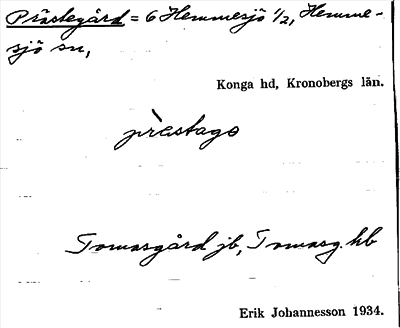 Prästegård = 6 Hemmesjö 1/2, Hemme-
sjö sn,
Konga hd, Kronobergs län.
prèstago
Tomasgård jb, Tomasg. hb
Erik Johannesson 1934.